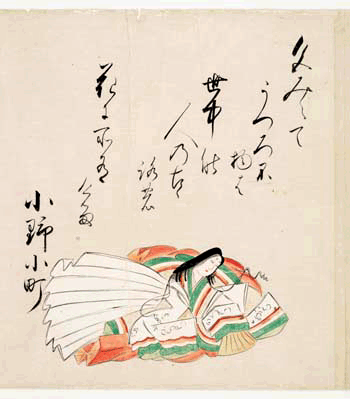 色みえて
うつろふ物は
世中の
人の心の
花にそ有ける
小野小町